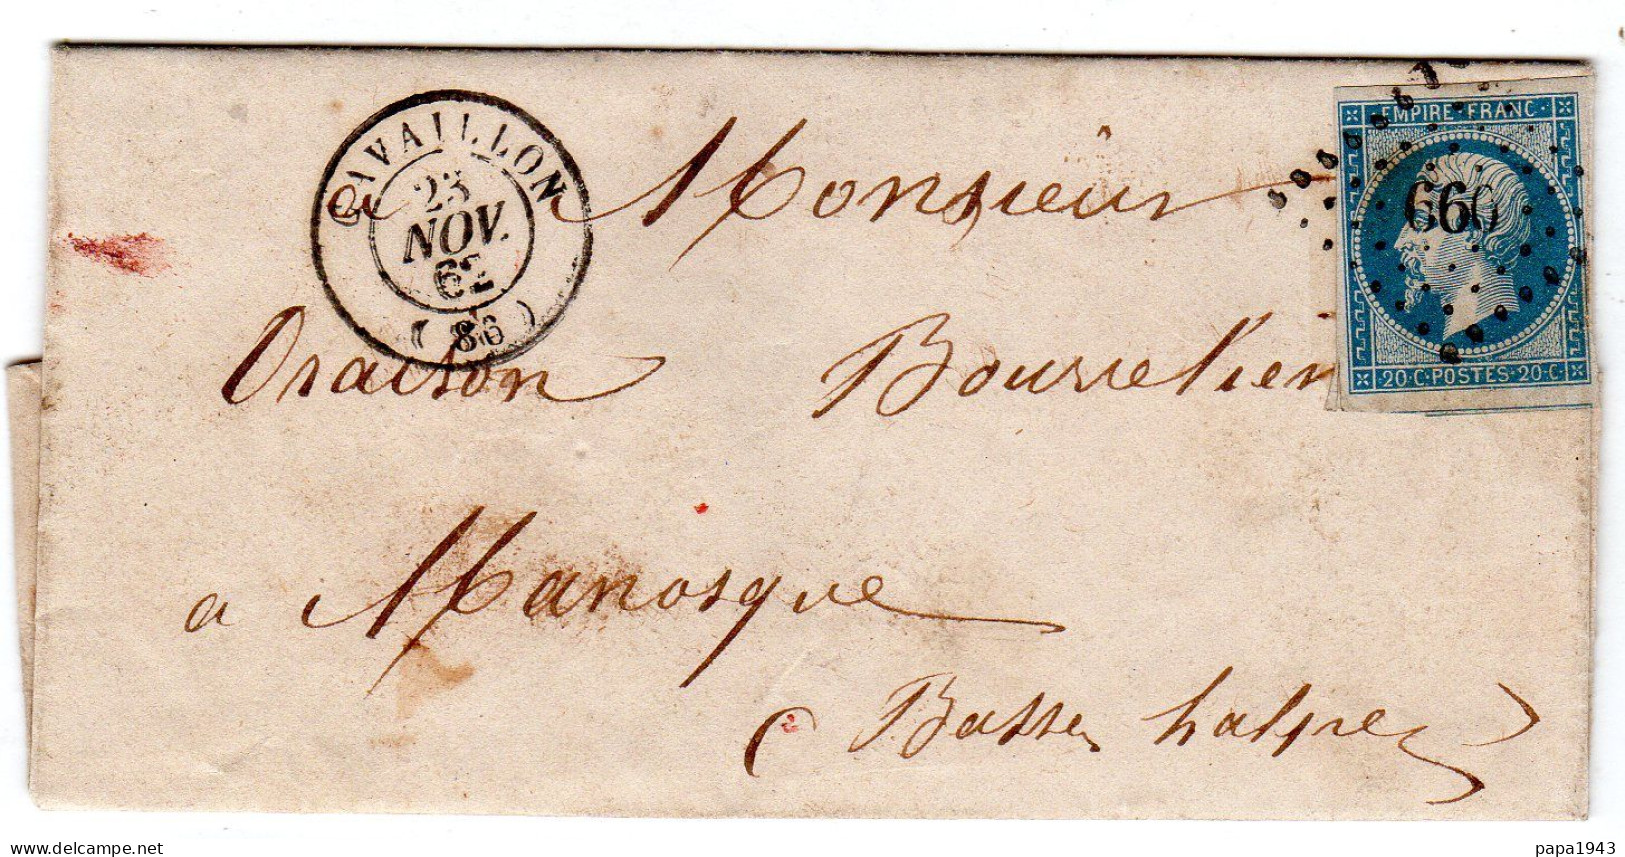 CAVAILLON
23
NOV.
62
( 86 )
EMPIRE FRANC
660
20·C·POSTES·20·C
Monsieur
Oraison Bourrelier
a Manosque
( Basses halpes )
delcampe.net
papa1943